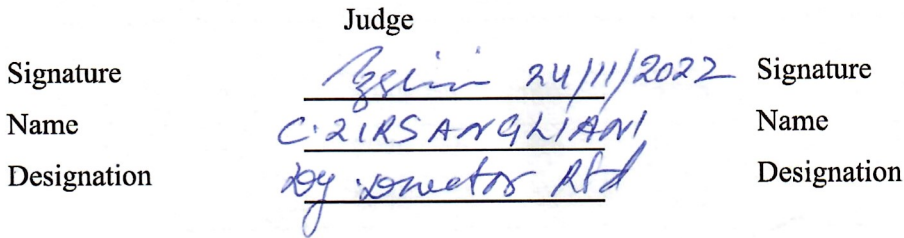 Judge
Signature 24/11/2022 Signature
Name C. ZIRSANGLIANI Name
Designation Dy. Director Rtd Designation